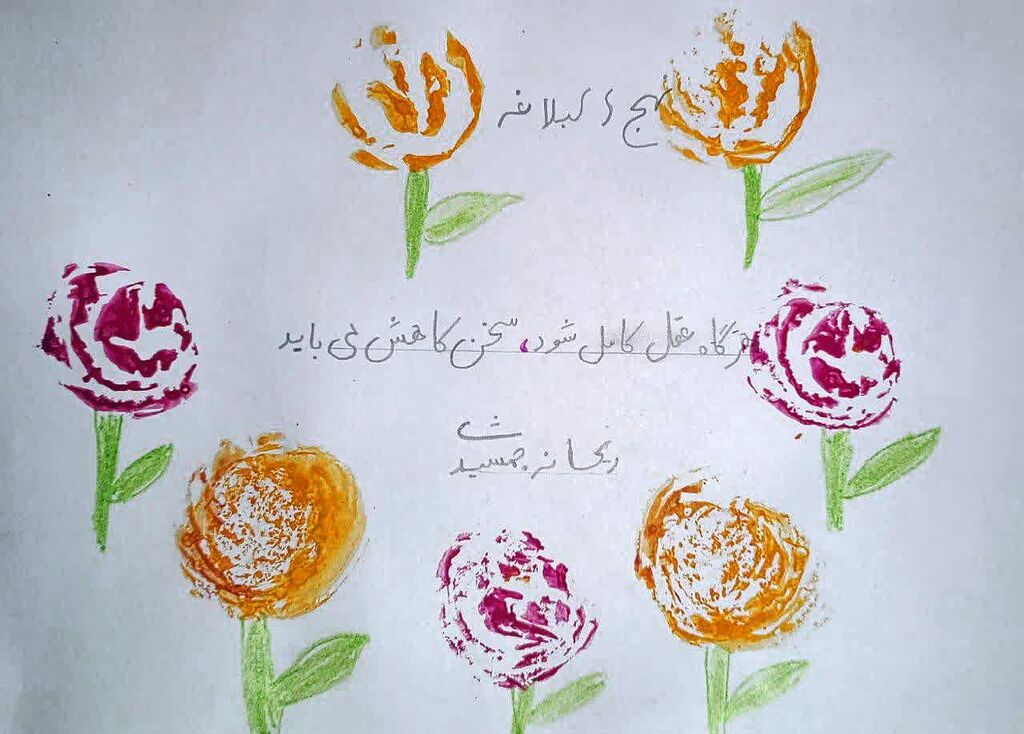 نهج البلاغه
هرگاه عقل کامل شود، سخن کاهش می یابد
ریحانه جمشیدی